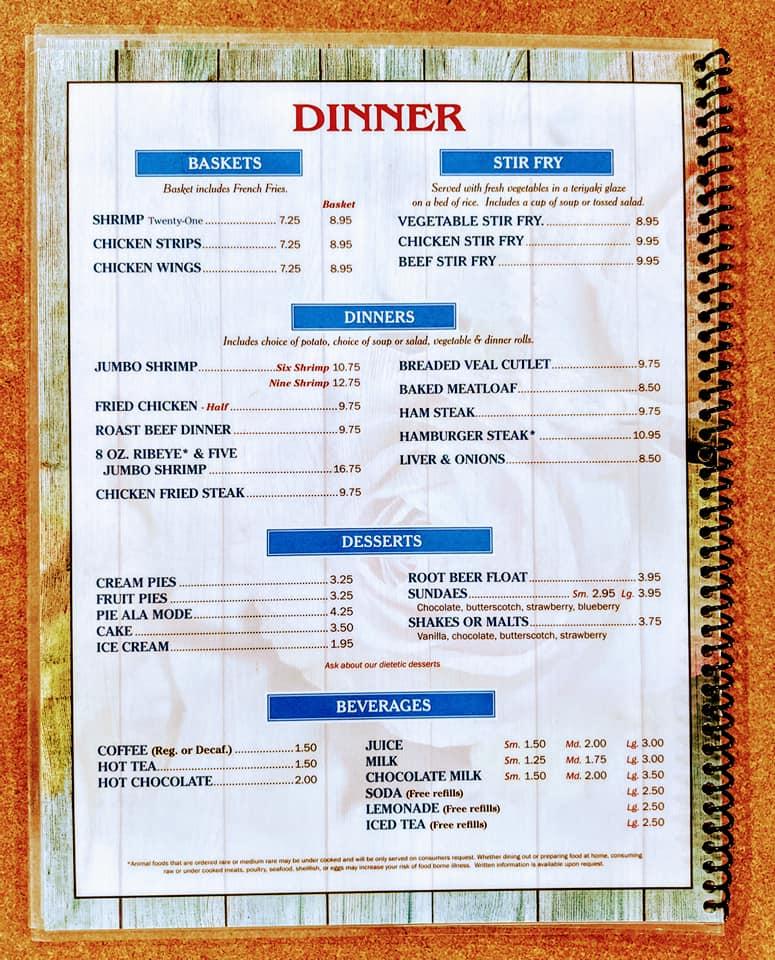 DINNER
BASKETS
Basket includes French Fries.
Basket
SHRIMP Twenty-One 7.25 8.95
CHICKEN STRIPS 7.25 8.95
CHICKEN WINGS 7.25 8.95
STIR FRY
Served with fresh vegetables in a teriyaki glaze
on a bed of rice. Includes a cup of soup or tossed salad.
VEGETABLE STIR FRY. 8.95
CHICKEN STIR FRY 9.95
BEEF STIR FRY 9.95
DINNERS
Includes choice of potato, choice of soup or salad, vegetable & dinner rolls.
JUMBO SHRIMP Six Shrimp 10.75
Nine Shrimp 12.75
FRIED CHICKEN - Half 9.75
ROAST BEEF DINNER 9.75
8 OZ. RIBEYE* & FIVE
JUMBO SHRIMP 16.75
CHICKEN FRIED STEAK 9.75
BREADED VEAL CUTLET 9.75
BAKED MEATLOAF 8.50
HAM STEAK 9.75
HAMBURGER STEAK* 10.95
LIVER & ONIONS 8.50
DESSERTS
CREAM PIES 3.25
FRUIT PIES 3.25
PIE ALA MODE 4.25
CAKE 3.50
ICE CREAM 1.95
ROOT BEER FLOAT 3.95
SUNDAES Sm. 2.95 Lg. 3.95
Chocolate, butterscotch, strawberry, blueberry
SHAKES OR MALTS 3.75
Vanilla, chocolate, butterscotch, strawberry
Ask about our dietetic desserts
BEVERAGES
COFFEE (Reg. or Decaf.) 1.50
HOT TEA 1.50
HOT CHOCOLATE 2.00
JUICE Sm. 1.50 Md. 2.00 Lg. 3.00
MILK Sm. 1.25 Md. 1.75 Lg. 3.00
CHOCOLATE MILK Sm. 1.50 Md. 2.00 Lg. 3.50
SODA (Free refills) Lg. 2.50
LEMONADE (Free refills) Lg. 2.50
ICED TEA (Free refills) Lg. 2.50
*Animal foods that are ordered rare or medium rare may be under cooked and will be only served on consumers request. Whether dining out or preparing food at home, consuming
raw or under cooked meats, poultry, seafood, shellfish, or eggs may increase your risk of food borne illness. Written information is available upon request.